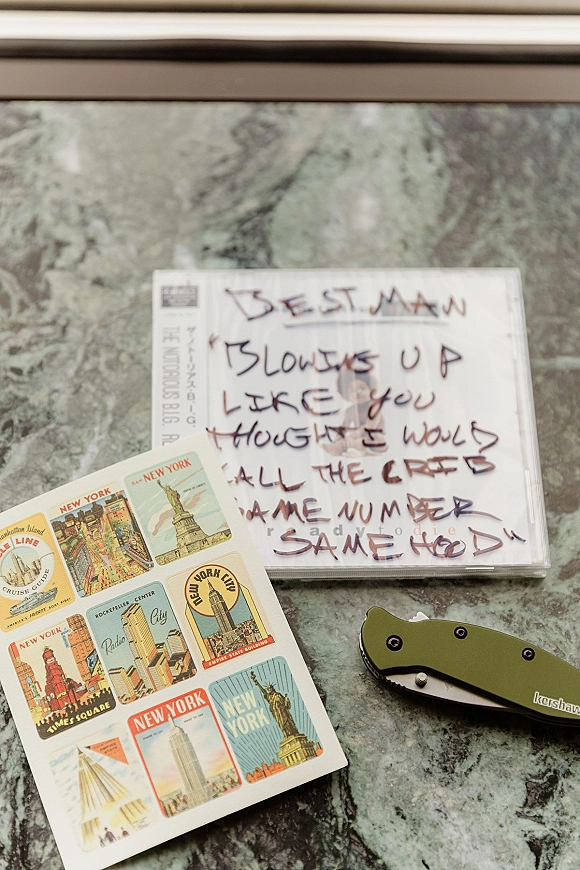 BEST MAN
"BLOWING UP
LIKE YOU
THOUGHT I WOULD
CALL THE CRIB
SAME NUMBER
SAME HOOD"
ザ・ノトーリアス・B.I.G.
THE NOTORIOUS B.I.G.
ready to die
Manhattan Island
LINE
CRUISE GUIDE
NEW YORK
NEW YORK
NEW YORK
TIMES SQUARE
ROCKEFELLER CENTER
Radio City
NEW YORK CITY
EMPIRE STATE BUILDING
NEW YORK
NEW YORK
kershaw